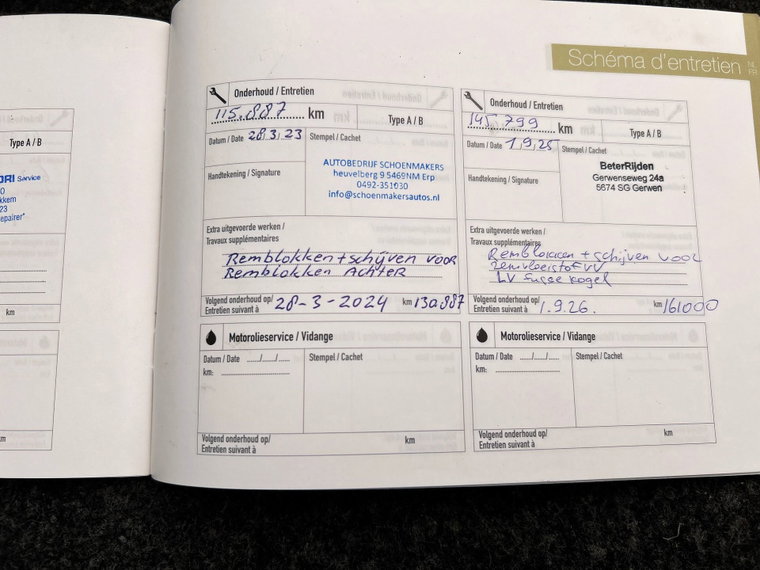 Schéma d'entretien
14
FR
Type A / B
Service
km
Onderhoud / Entretien
115.887 km
Type A / B
Datum / Date 28,3,23
Stempel / Cachet
Handtekening / Signature
AUTOBEDRIJF SCHOENMAKERS
heuvelberg 9 5469NM Erp
0492-351030
info@schoenmakersautos.nl
Extra uitgevoerde werken /
Travaux supplémentaires
Remblokken + schijven voor
Remblokken Achter
Volgend onderhoud op/
Entretien suivant à 28-3-2024 km 130.887
Onderhoud / Entretien
145.799 km
Type A / B
Datum / Date 1,9,25
Stempel / Cachet
Handtekening / Signature
BeterRijden
Gerwenseweg 24a
5674 SG Gerwen
Extra uitgevoerde werken /
Travaux supplémentaires
Remblokken + schijven voor
remvloeistof VV
LV fusee kogel
Volgend onderhoud op/
Entretien suivant à 1.9.26. km 161000
Motorolieservice / Vidange
Datum / Date ...../...../.....
Stempel / Cachet
km:
Volgend onderhoud op/
Entretien suivant à
km
Motorolieservice / Vidange
Datum / Date ...../...../.....
Stempel / Cachet
km:
Volgend onderhoud op/
Entretien suivant à
km